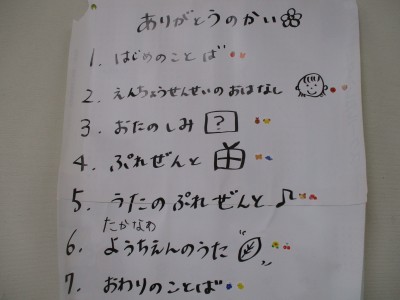 ありがとうのかい
1. はじめのことば
2. えんちょうせんせいのおはなし
3. おたのしみ ?
4. ぷれぜんと
5. うたのぷれぜんと♪
たかなわ
6. ようちえんのうた
7. おわりのことば